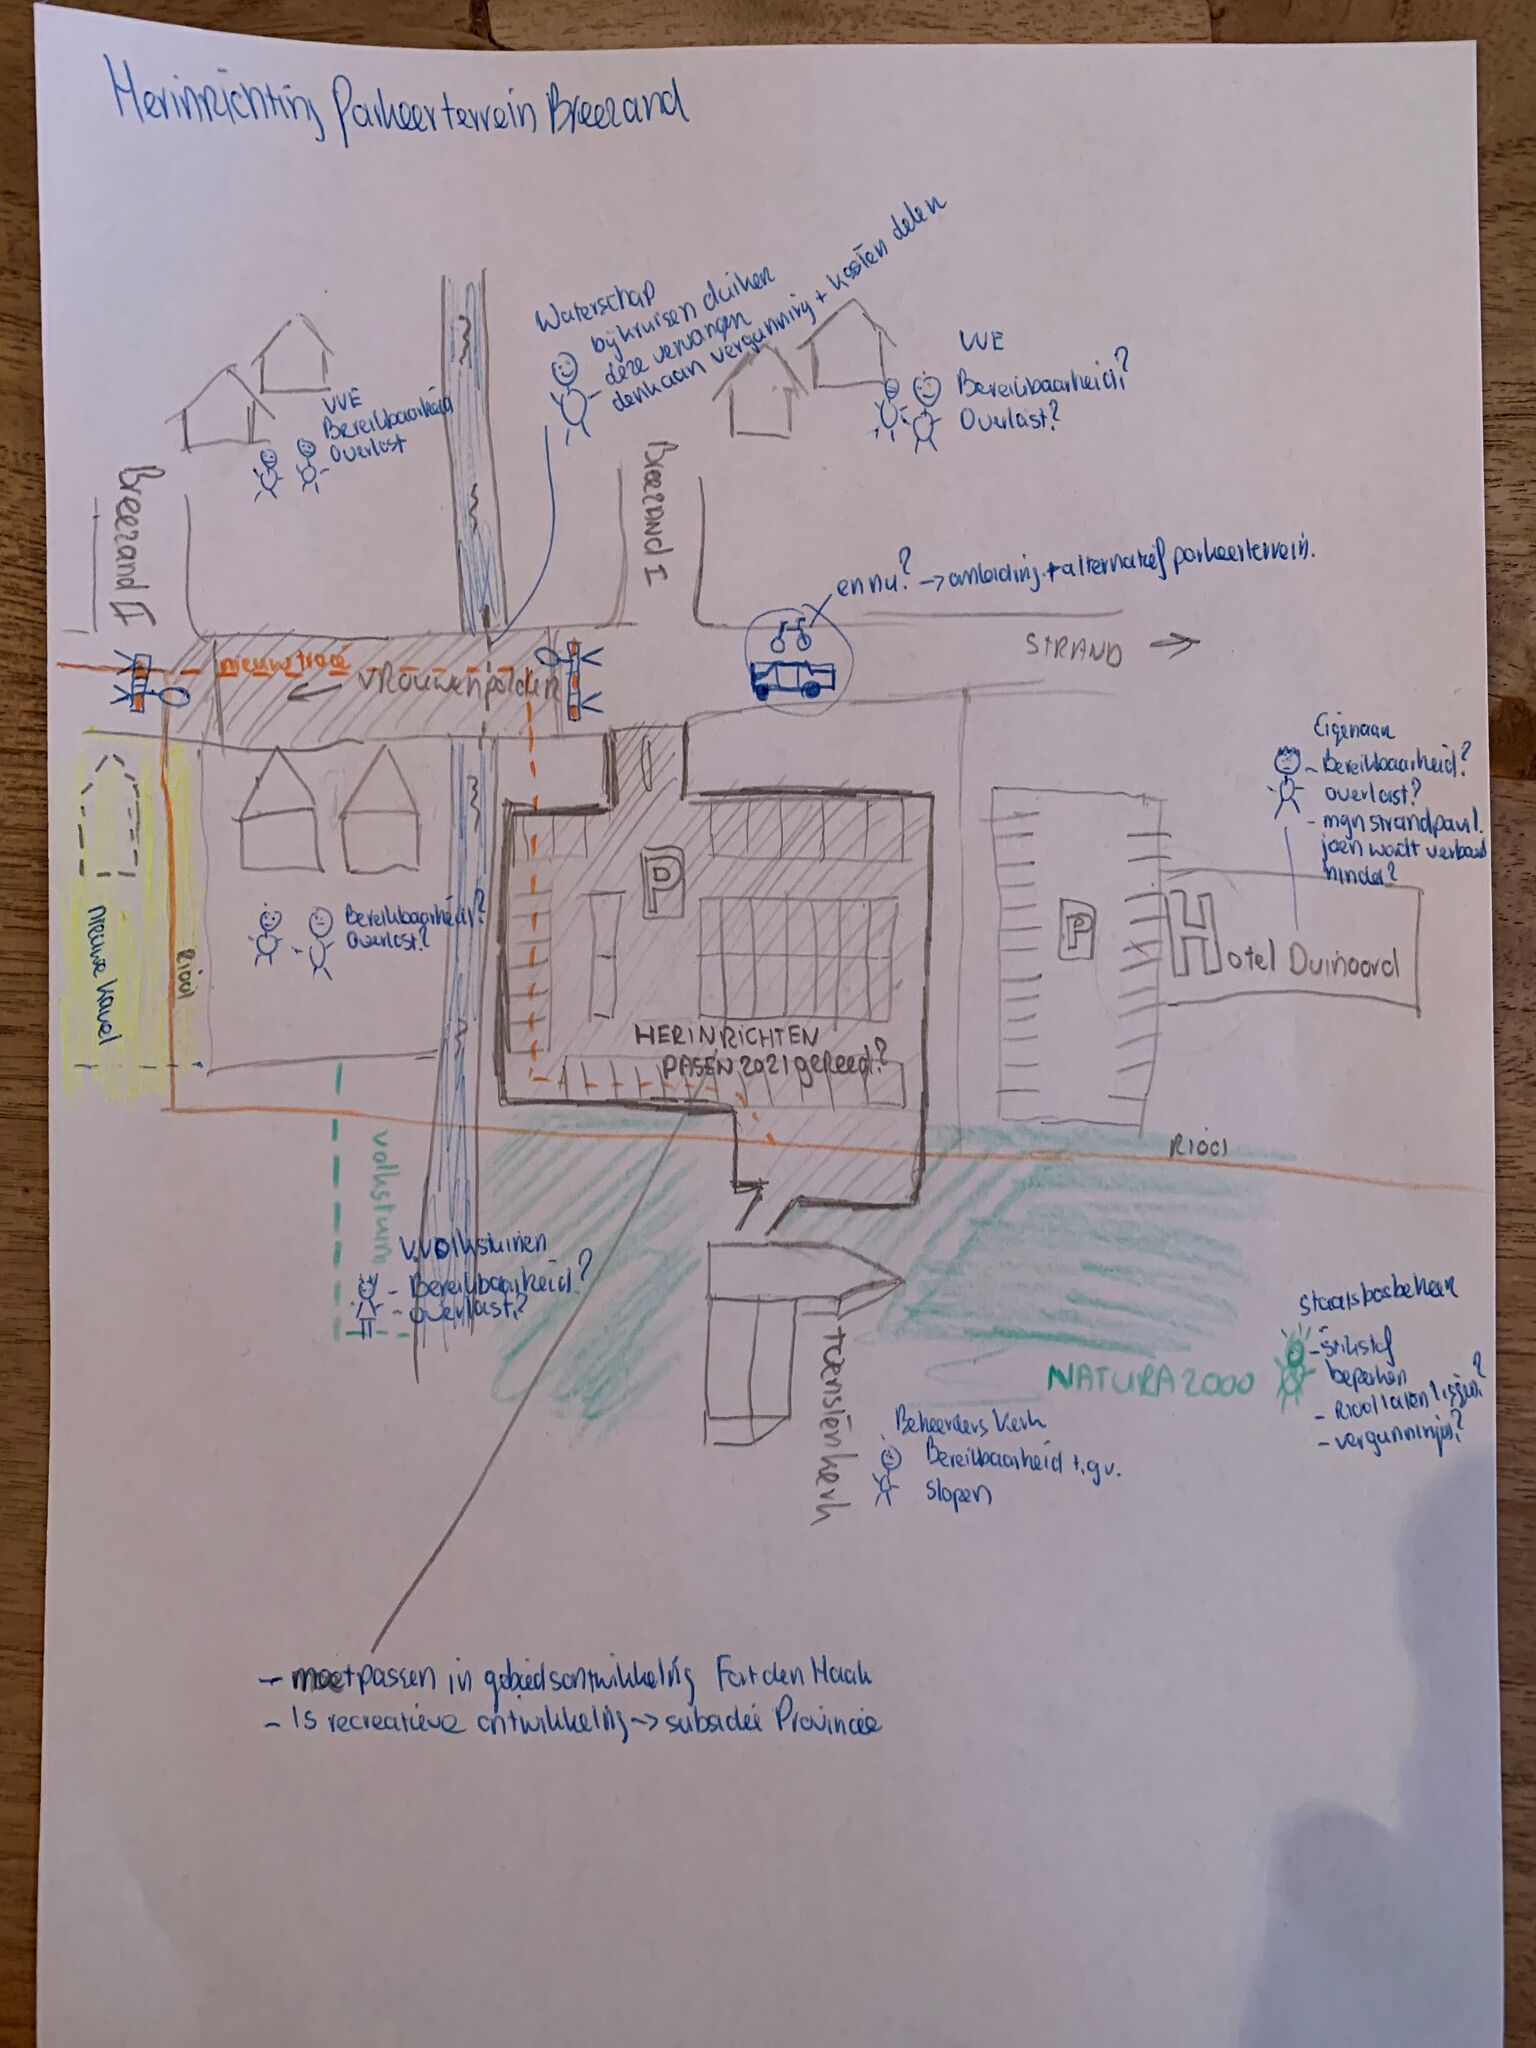 Herinrichting Parkeerterrein Breezand
Waterschap
bij kruisen duiker
deze vervangen
denk aan vergunning + kosten delen
VVE
Bereikbaarheid
Overlast
VVE
Bereikbaarheid?
Overlast?
Breezand II
Breezand I
en nu? -> omleiding + alternatief parkeerterrein.
STRAND →
nieuwe tracé
← VROUWENPOLDER
Eigenaar
- Bereikbaarheid?
overlast?
- mijn strandpavil.
joen wordt verbouwd
hinder?
P
P
Bereikbaarheid?
Overlast?
nieuwe kavel
Riool
Hotel Duinoord
HERINRICHTEN
PASEN 2021 gereed?
Riool
volkstuin
VVolkstuinen
- Bereikbaarheid?
- overlast?
toensienkerk
NATURA 2000
Staatsbosbeheer
- Stikstof
beperken
- Riool laten liggen?
- vergunningen?
Beheerders kerk
Bereikbaarheid t.g.v.
slopen
- moet passen in gebiedsontwikkeling Fort den Haak
- Is recreatieve ontwikkeling -> subsidie Provincie